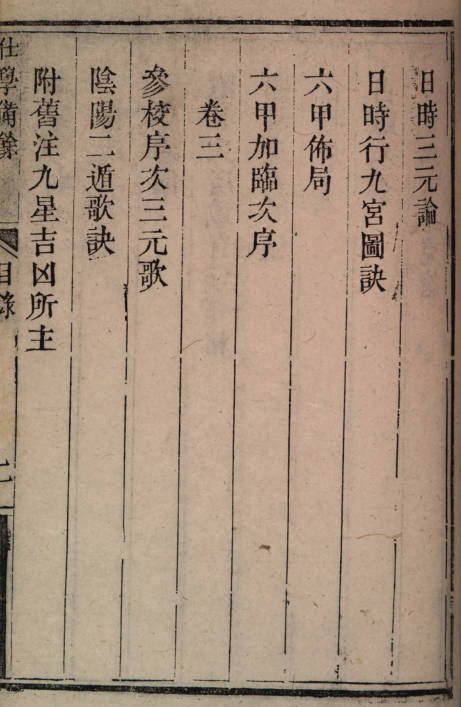 日時三元論
日時行九宮圖訣
六甲佈局
六甲加臨次序
卷三
參校序次三元歌
陰陽二遁歌訣
附舊注九星吉凶所主
仕學備餘
目錄